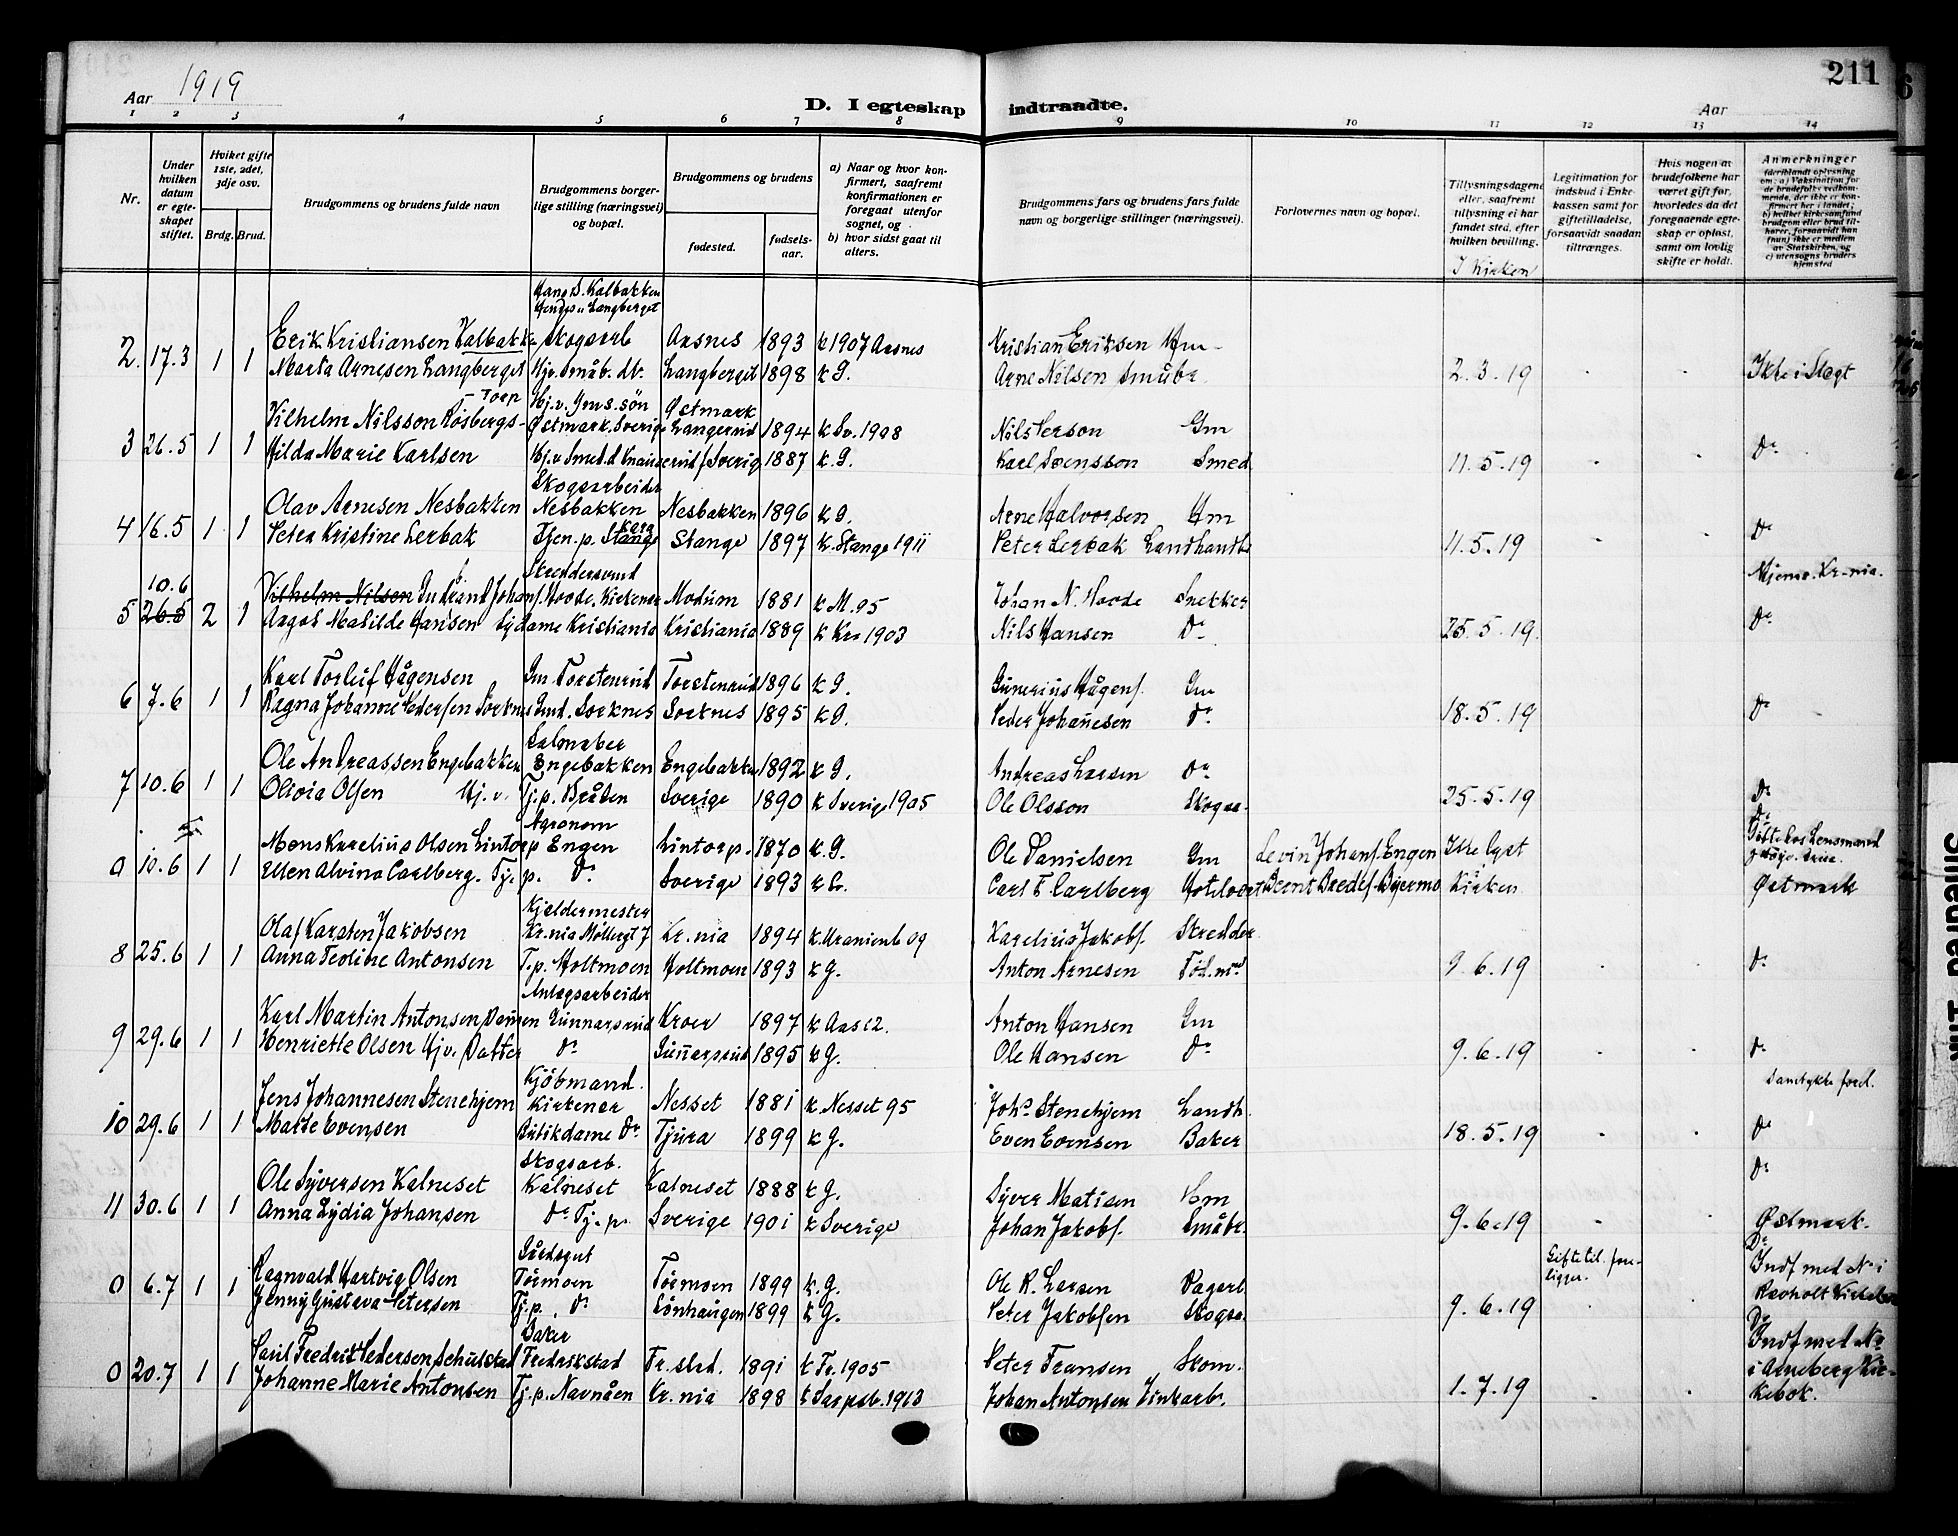 211
Aar 1919
D. I egteskap indtraadte.
Aar
1 2 3 4 5 6 7 8 9 10 11 12 13 14
Nr.
Under hvilken datum er egteskapet stiftet.
Hvilket gifte 1ste, 2det, 3dje osv.
Brdg. Brud.
Brudgommens og brudens fulde navn
Brudgommens borgerlige stilling (næringsvei) og bopæl.
Brudgommens og brudens
fødested. fødselsaar.
a) Naar og hvor konfirmert, saafremt konfirmationen er foregaat utenfor sognet, og
b) hvor sidst gaat til alters.
Brudgommens fars og brudens fars fulde navn og borgerlige stillinger (næringsvei).
Forlovernes navn og bopæl.
Tillysningsdagene eller, saafremt tillysning ei har fundet sted, efter hvilken bevilling.
I Kirken
Legitimation for indskud i Enkekassen samt for giftetilladelse, forsaavidt saadan tiltrænges.
Hvis nogen av brudefolkene har været gift før, hvorledes da det foregaaende egteskap er opløst, samt om lovlig skifte er holdt.
Anmerkninger
Hans S. Kalbakken
Langberget
2. 17.3 1 1 Erik Kristiansen Kalbakk Skogsarb Aasnes 1893 k 1907 Aasnes Kristian Eriksen Hm
Marta Arnesen Langberget Hjv. Småb. dt. Langberget 1898 k G. Arne Nilsen Småbr. 2.3.19 Ikke i Slegt
Torp Hj.v. Gms. søn Østmark
3 26.5 1 1 Vilhelm Nilsson Røsbergs- Østmark. Sverige Langerud 1894 k Sv. 1908 Nils Person Gm
Hilda Marie Karlsen Hj.v Smed. d Sverig 1887 k. G. Karl Svensson Smed 11.5.19 Do
Skogsarbeider
4 16.5 1 1 Olav Arnesen Nesbakken Nesbakken Nesbakken 1896 k G. Arne Halvorsen Hm
Petra Kristine Lerbak Tjen. p. Stange Stange 1897 k. Stange 1911 Peter Lerbak Landhandl 11.5.19 Do
10.6 Skreddersvend Hjems. Kr.nia.
5 26.5 2 1 Vilhelm Nilsen Gudrand Johans. Moode. Kirkener Modum 1881 k M. 95 Johan N. Moode Snekker
Aagot Matilde Hansen Sydame Kristiania Kristiania 1889 k Kra 1903 Nils Hansen Do 25.5.19. Do
6 7.6 1 1 Karl Torleif Hågensen Gm. Torstenrud Torstenrud 1896 k G. Gunerius Hågens. Gm
Ragna Johanne Pedersen Sorknes Gmd. Sorknes Sorknes 1895 k G. Peder Johanesen Do 18.5.19 Do
Salmaker
7 10.6 1 1 Ole Andreassen Engebakken Engebakken Engebakke 1892 k G. Andreas Larsen Do
Olivia Olsen Hj. v. Tj. p. Bråten Sverige 1890 k Sverige 1905 Ole Olsson Skogsa. 25.5.19 Do
Agronom Do
0 10.6 1 1 Mons Karelius Olsen Lintorp Engen Lintorp. 1870 k. G. Ole Danielsen Gm Levin Johans. Engen Ikke lyst
Ellen Alvina Carlberg. Tj. p. Do Sverige 1893 k Sv. Carl F. Carlberg Hotelvert Bernt Kirken Østmark
Kjeldermester
8 25.6 1 1 Olaf Karsten Jakobsen Kr.nia Møllergt 7 Kr.nia 1894 k. Uranienb 09 Karelius Jakobs. Skredder
Anna Teoline Antonsen T.p. Holtmoen Holtmoen 1893 k G. Anton Arnesen 9.6.19 Do
Anlegsarbeider
9 29.6 1 1 Karl Martin Antonsen Gunnarsrud Kroer 1897 k Aas 12. Anton Hansen Gm
Henriette Olsen Hjv. Datter Do Gunnarsrud 1895 k G. Ole Hansen Do 9.6.19 Do
Kjöbmand. Samtykke forel.
10 29.6 1 1 Jens Johannesen Stenehjem Kirkener Nesset 1881 k. Nesset 95 Johs. Stenehjem Landh.
Marte Evensen Butikdame Do Tjura 1899 k G. Even Evensen Baker 18.5.19 Do
Skogsarb. Do
11 30.6 1 1 Ole Syversen Kalneset Kalneset Kalneset 1888 k G. Syver Matisen Hm
Anna Lydia Johansen Do Tj. p. Sverige 1901 k Sverige Johan Jakobs. Småbr. 9.6.19 Østmark.
Gårdsgut Giftetil. foreligger. Do
0 6.7 1 1 Ragnvald Hartvig Olsen Törmoen Törmoen 1899 k. G. Ole R. Larsen Indf med No i
Jenny Gustava Petersen Tj. p. Do Lönhaugen 1899 k G. Peter Jakobsen Skogsa. 9.6.19 Revholt Kirkebok
Baker Do
0 20.7 1 1 Paul Fredrik Pedersen Schulstad Fredrikstad Fr. stad. 1891 k Fr. 1905 Peter Fransen Skom. Indf med No
Johanne Marie Antonsen Tj. p. Navnåen Kr.nia 1898 k Sarpsb. 1913 Johan Antonsen Zinkarb. 1.7.19 i Arneberg Kirkebok.